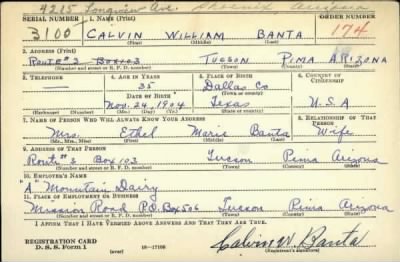 4215 Longview Ave. Phoenix Arizona
SERIAL NUMBER 1. NAME (Print) ORDER NUMBER
3100 CALVIN WILLIAM BANTA 174
(First) (Middle) (Last)
2. ADDRESS (Print)
Route #2 Box 103 TUCSON PIMA ARIZONA
(Number and street or R. F. D. number) (Town) (County) (State)
3. TELEPHONE 4. AGE IN YEARS 5. PLACE OF BIRTH 6. COUNTRY OF CITIZENSHIP
— 35 Dallas Co
DATE OF BIRTH
Nov. 24, 1904 Texas U.S.A
(Exchange) (Number) (Mo.) (Day) (Yr.) (State or country)
7. NAME OF PERSON WHO WILL ALWAYS KNOW YOUR ADDRESS 8. RELATIONSHIP OF THAT PERSON
Mrs. Ethel Marie Banta Wife
(Mr., Mrs., Miss) (First) (Middle) (Last)
9. ADDRESS OF THAT PERSON
Route #2 Box 103 Tucson Pima Arizona
(Number and street or R. F. D. number) (Town) (County) (State)
10. EMPLOYER'S NAME
"A" Mountain Dairy
11. PLACE OF EMPLOYMENT OR BUSINESS
Mission Road P.O. Box 506 Tucson Pima Arizona
(Number and street or R. F. D. number) (Town) (County) (State)
I AFFIRM THAT I HAVE VERIFIED ABOVE ANSWERS AND THAT THEY ARE TRUE.
REGISTRATION CARD
D. S. S. Form 1 (over) 16—17105 Calvin W. Banta